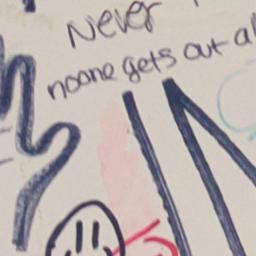 Never
noone gets out al